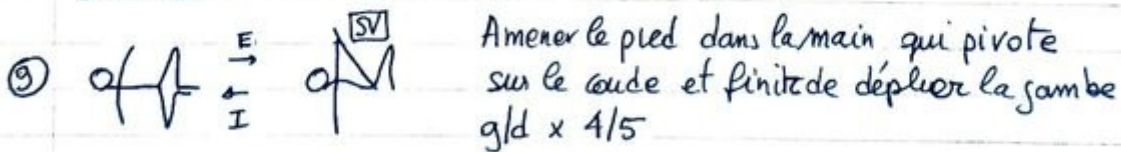 ⑨ E. I SV
Amener le pied dans la main qui pivote
sur le coude et finit de déplier la jambe
g/d x 4/5